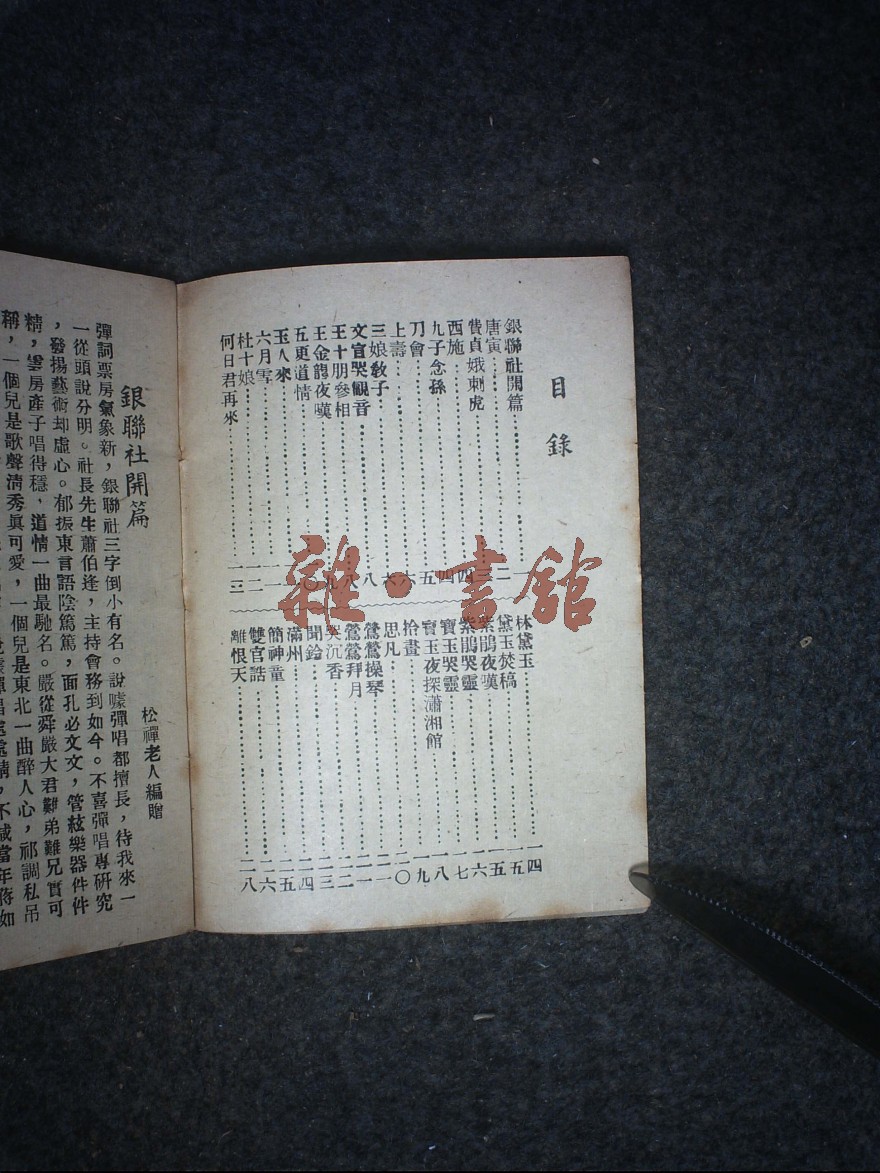 目錄
銀聯社開篇……一
唐寅……二
費貞娥刺虎……三
西施……四
九子念孫……四
刀會……五
上壽……六
三娘敎子……六
文宣哭觀音……八
王十朋參相……八
王金龍夜嘆……九
五更道情……
玉人來……
六月雪……
杜十娘……一二
何日君再來……一三
林黛玉……一四
黛玉焚稿……一五
紫鵑夜嘆……一五
紫鵑哭靈……一六
寶玉哭靈……一七
寶玉夜探瀟湘館……一八
拾畫……一九
思凡……二〇
鶯鶯操琴……二一
鶯鶯拜月……二一
哭沉香……二二
聞鈴……二三
滿州……二四
簡神童……二五
雙官誥……二六
離恨天……二八
銀聯社開篇
松禪老人編贈
彈詞票房氣象新，銀聯社三字倒小有名。說噱彈唱都擅長，待我來一
一從頭說分明。社長先生蕭伯逢，主持會務到如今。不喜彈唱專研究
，發揚藝術却虛心。郁振東言語陰篤篤，面孔必文文，管絃樂器件件
精，雲房產子唱得穩，道情一曲最馳名。嚴從舜嚴大君難弟難兄實可
稱，一個兒是歌聲清秀眞可愛，一個兒是東北一曲醉人心，祁調私吊
彈唱處處精，不減當年蔣如
雜·書館